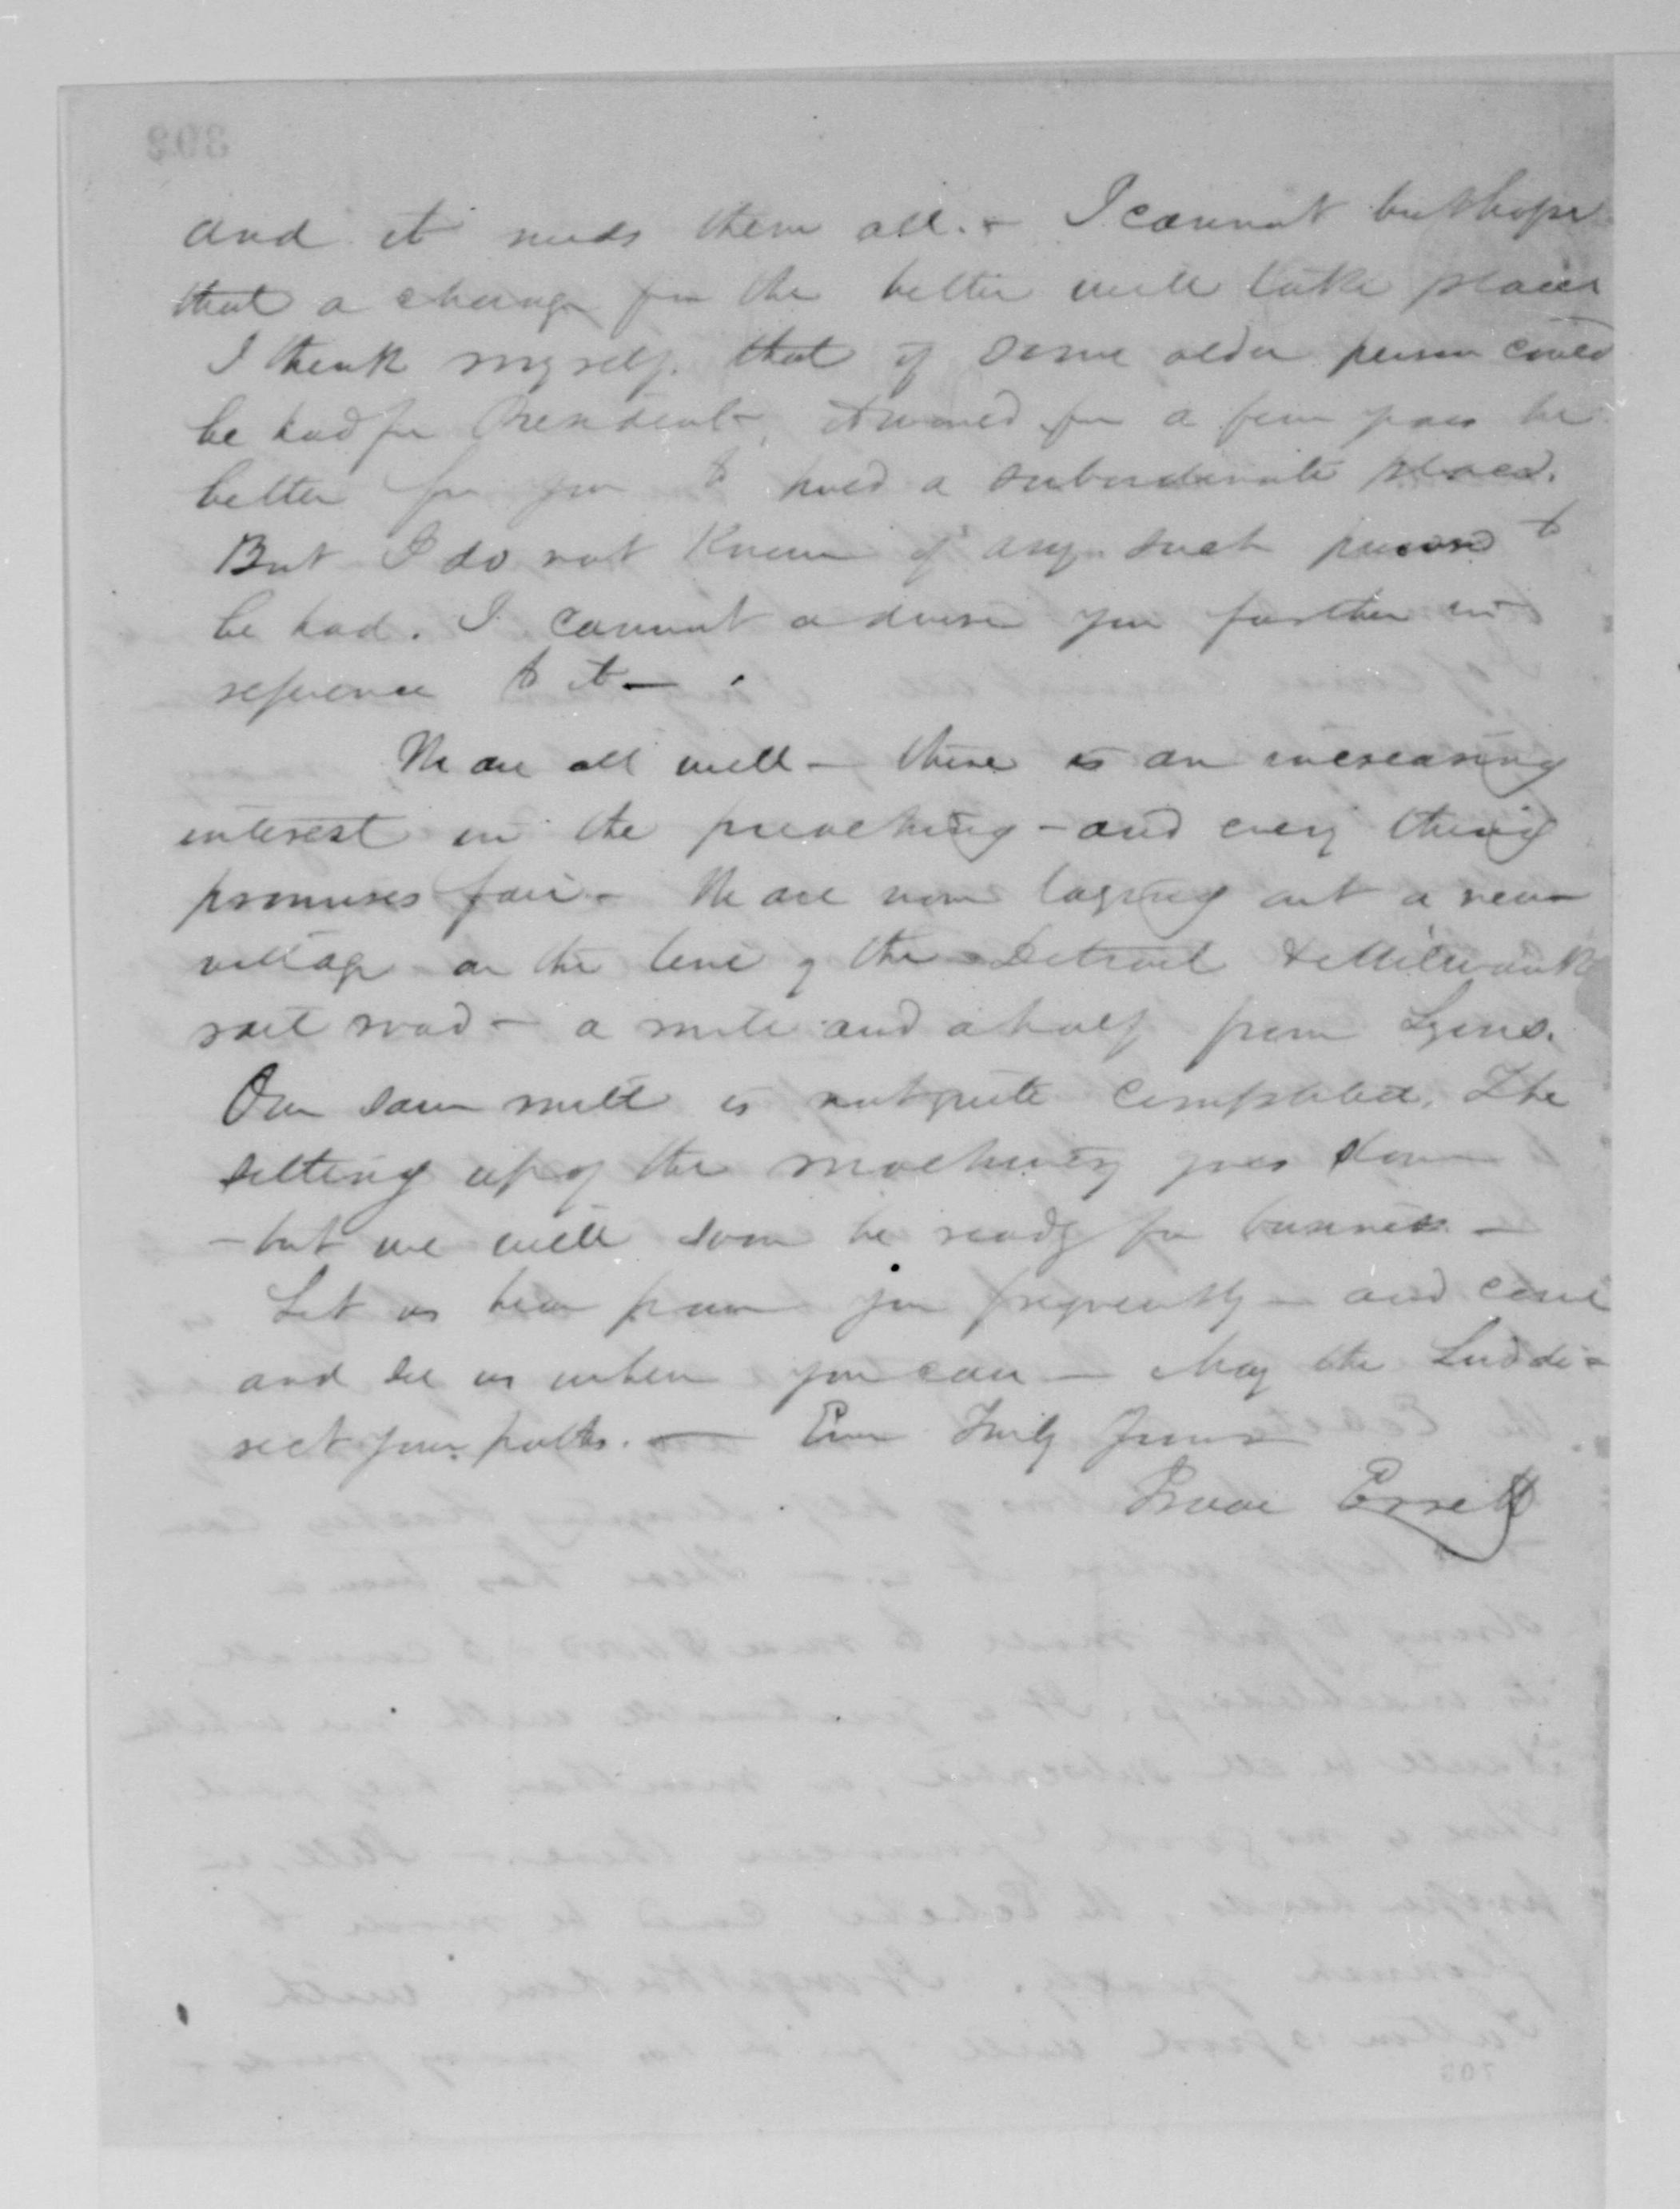 and it needs them all. - I cannot but hope
that a change for the better will take place
I think myself that if some older person could
be had for President, it would for a few years be
better for you to hold a subordinate place.
But I do not know of any such person to
be had. I cannot advise you further in
reference to it —
We are all well - there is an increasing
interest in the preaching - and every thing
promises fair - We are now laying out a new
village on the line of the Detroit & Milwaukie
rail road - a mile and a half from Lyons.
Our saw mill is not quite completed. The
setting up of the machinery goes slow
- but we will soon be ready for business -
Let us hear from you frequently - and come
and see us when you can - May the Lord di-
rect your paths. — Ever Truly Yours
Isaac Errett